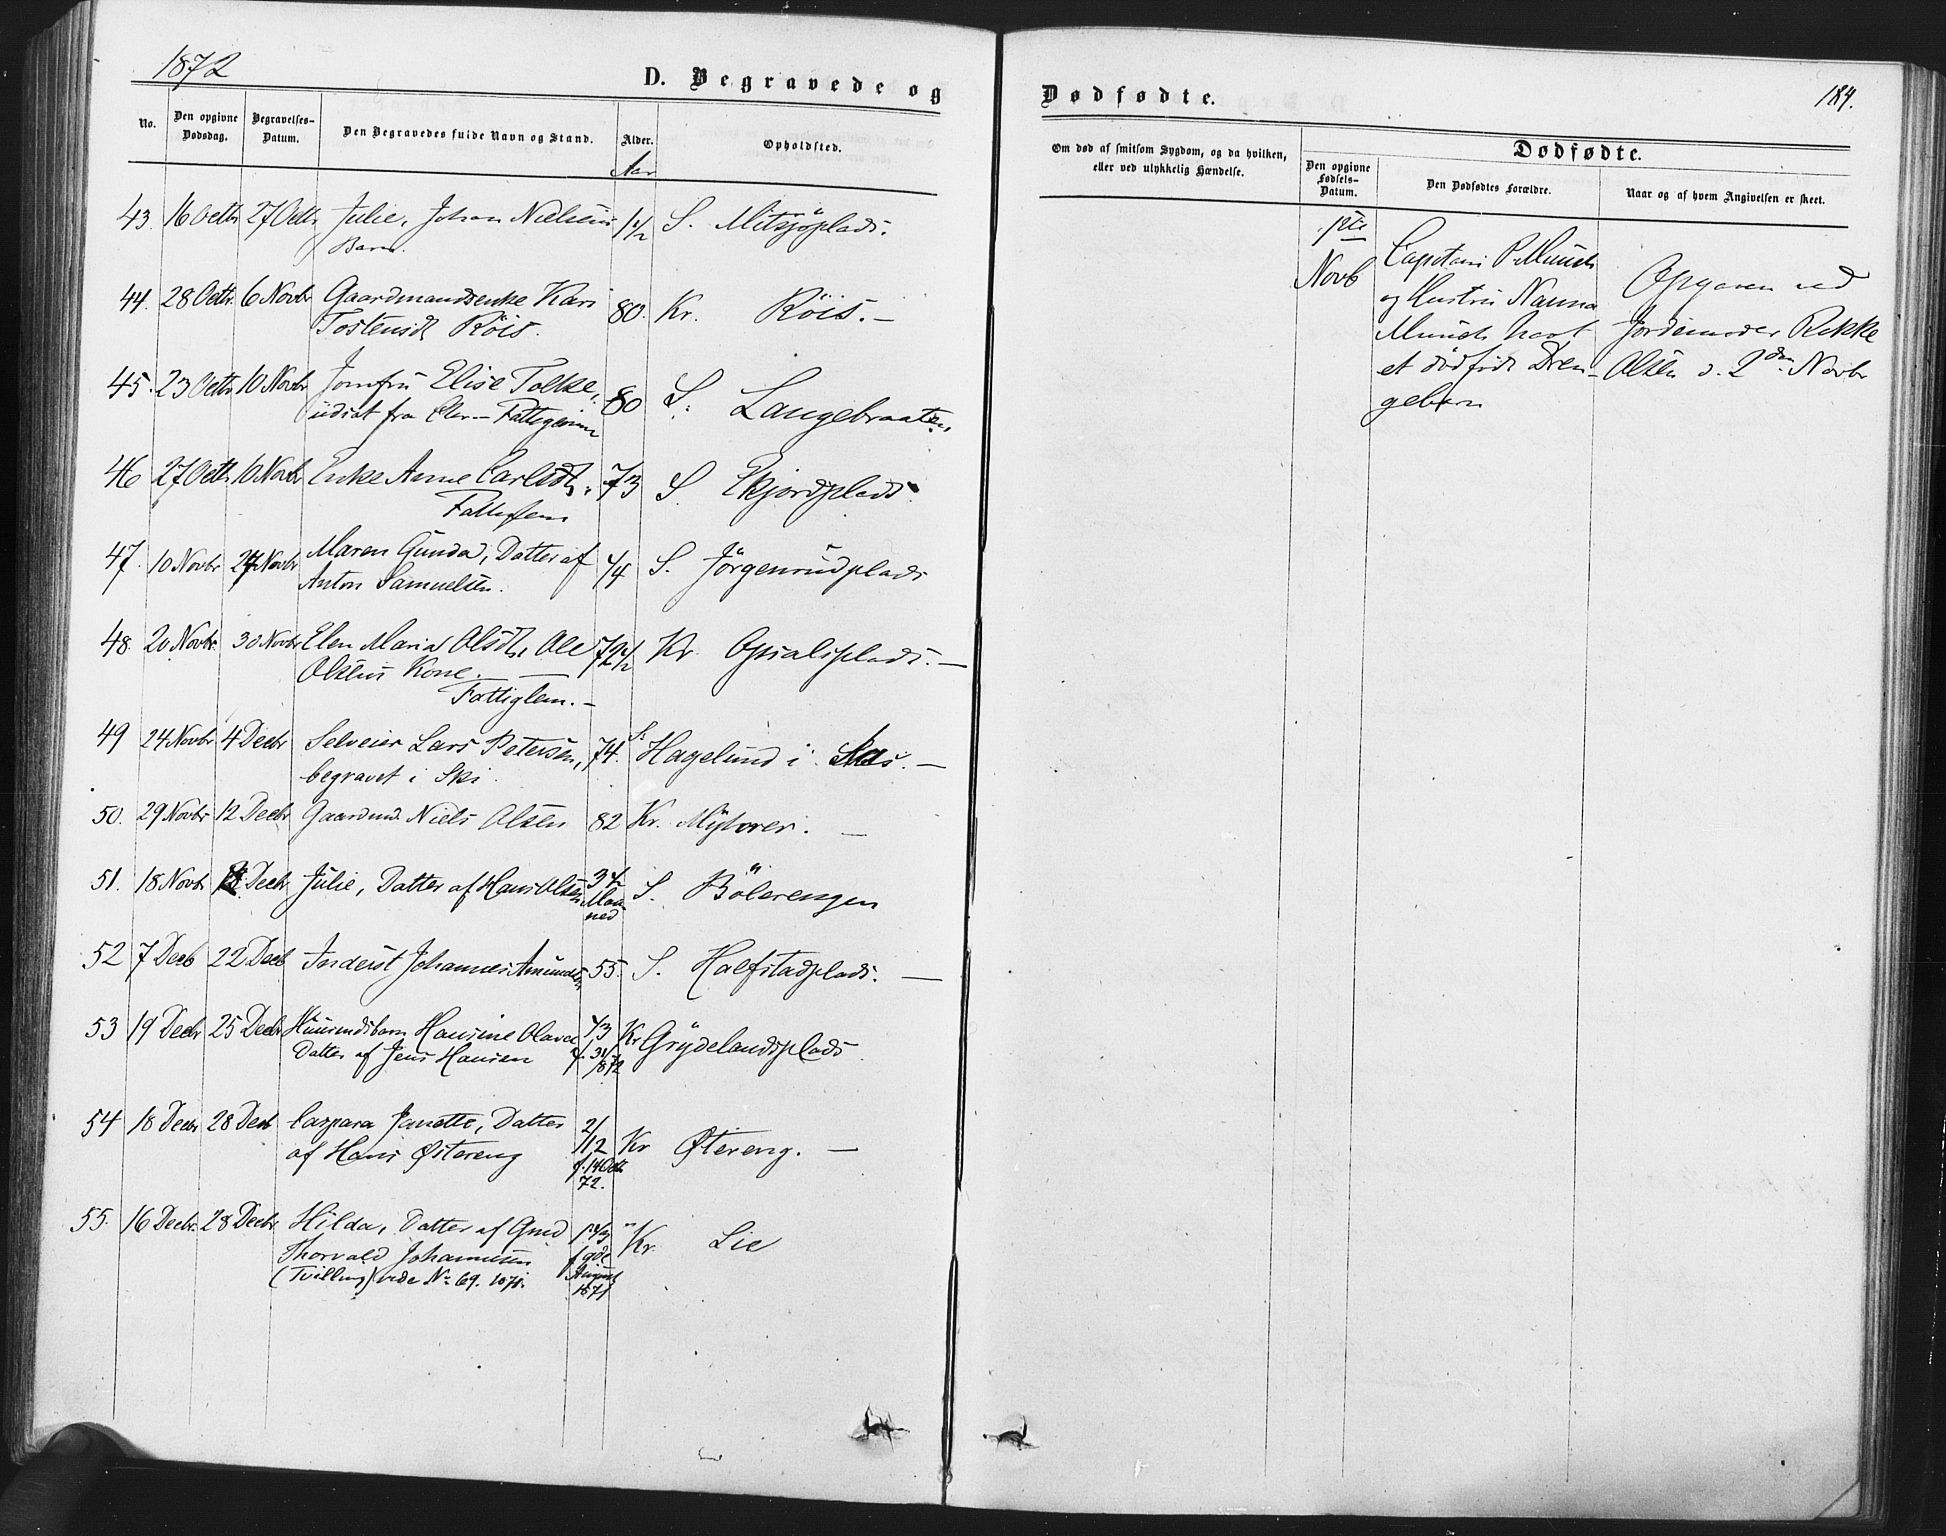 1872
D. Begravede og
No.
Den opgivne Dødsdag.
Begravelses-Datum.
Den Begravedes fulde Navn og Stand.
Alder.
Aar
Opholdsted.
43. 16 Octb 27 Octb Julie, Johan Nielsens 1 1/2 S. Mitsjöplads.
Barn.
44. 28 Octb. 6 Novbr Gaardmandsenke Kari 80. Kr. Röis. —
Tostensdt Röis.
45. 23 Octb 10 Novbr Jomfru Elise Tolke, 80 S. Langebraaten,
udsat fra Chr-
46 27 Octb 10 Novbr Enke Anne Carlsdt, 73 S. Ekjordplads.
Fattiglem
47. 10 Novbr 24 Novbr Maren Gunda, Datter af 1/4 S. Jörgensrudplads
Anton Samuelsen.
48. 20 Novbr. 30 Novbr Elen Maria Olsdt, Ole 72 1/2 Kr. Opsalsplads. —
Olsens Kone. —
Fattiglem. —
49 24 Novbr 4 Decbr Selveier Lars Petersen, 74. S. Hagelund i Aas. —
begravet i Ski.
50. 29 Novbr 12 Decbr Gaardmd. Niels Olsen 82 Kr. Myhrer. —
51. 18 Novbr Decbr Julie, Datter af Hans Olsen 3 1/2 S. Bölerengen
Maaned
52 7 Decb 22 Decb Inderst Johannes Amundsen 55. S. Halfstadplads. —
53 19 Decbr 25 Decbr Huusmdsbarn Hansine Olava 1/3 Kr Grydelandsplads
Datter af Jens Hansen f. 31/8 72
54 18 Decbr 28 Decb Caspara Janette, Datter 2/12 Kr Østereng. —
af Hans Østereng f. 14 Oct. 72.
55. 16 Decbr. 28 Decbr Hilda, Datter af Gmd 1 1/3 Kr. Lie
Thorvald Johannesen f 9de
(Tvilling) vide No 69. 1871. August 1871
Dødfødte.
184.
Om død af smitsom Sygdom, og da hvilken,
eller ved ulykkelig Hændelse.
Dødfødte.
Den opgivne Fødsels-Datum.
Den Dødfødtes Forældre.
Naar og af hvem Angivelsen er skeet.
1ste
Novb
Capitain P. Munch
og Hustru Nanna
Munch havt
et dødfødt Dren-
gebarn
Opgaven ved
Jordemoder Rikke
Olsen d. 2den Novbr